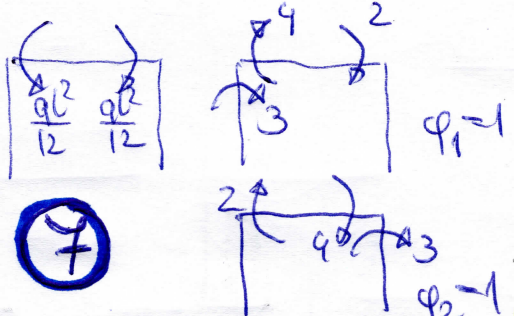 4 2
ql²/12 ql²/12
3
φ₁=1
7
2
4 3
φ₂=1